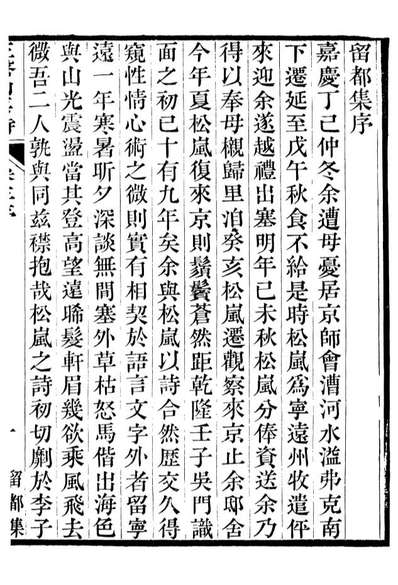 留都集序
嘉慶丁巳仲冬余遭母憂居京師會漕河水溢弗克南
下遷延至戊午秋食不給是時松嵐爲寧遠州牧遣伻
來迎余遂越禮出塞明年己未秋松嵐分俸資送余乃
得以奉母櫬歸里洎癸亥松嵐遷觀察來京止余邸舍
今年夏松嵐復來京則鬚鬢蒼然距乾隆壬子吳門識
面之初已十有九年矣余與松嵐以詩合然歷交久得
窺性情心術之微則實有相契於語言文字外者留寧
遠一年寒暑昕夕深談無間塞外草枯怒馬偕出海色
與山光震盪當其登高望遠晞髮軒眉幾欲乘風飛去
微吾二人孰與同兹襟抱哉松嵐之詩初切劘於李子
一
留都集